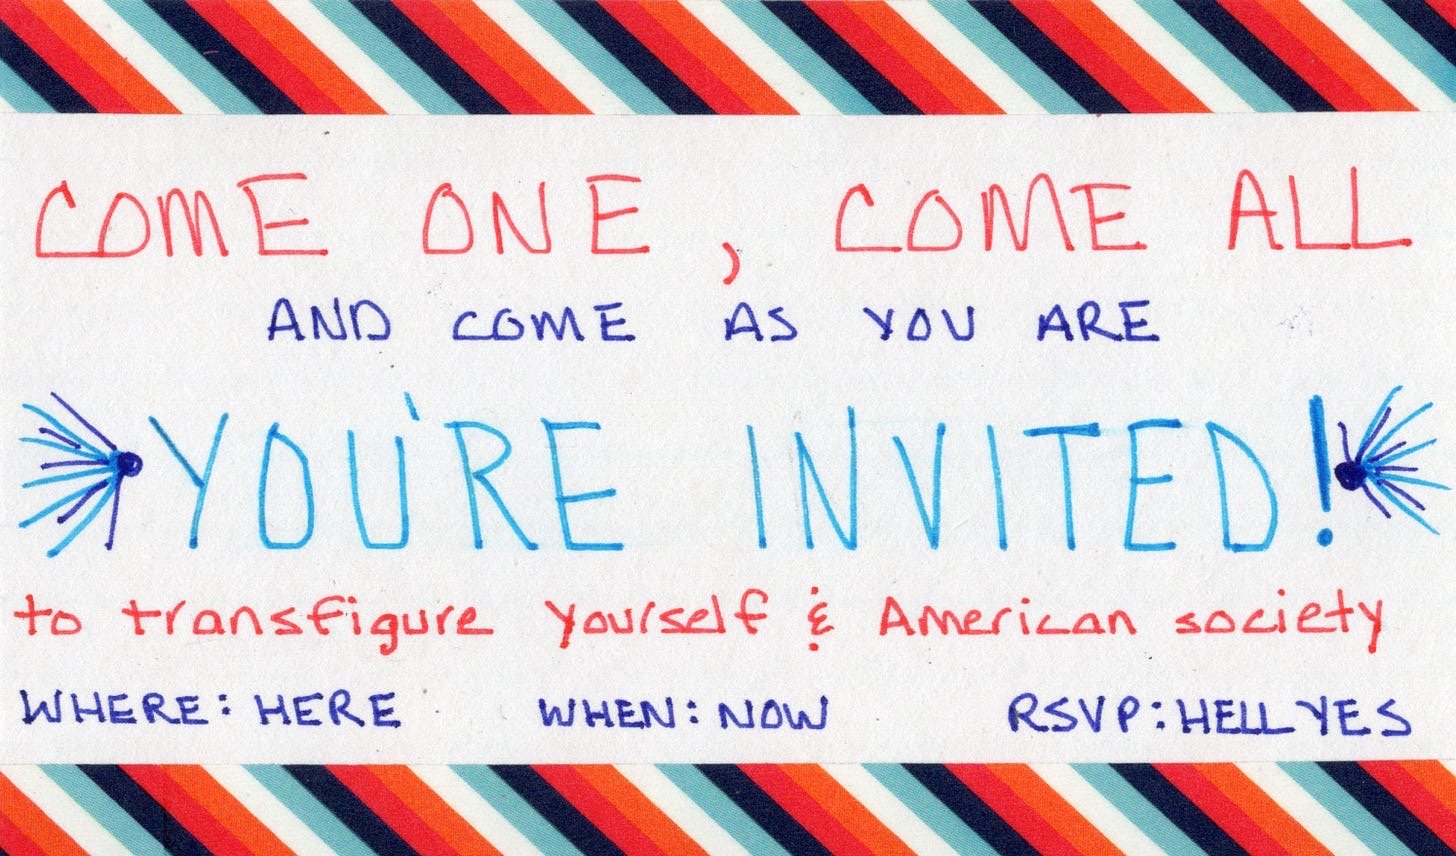 COME ONE, COME ALL
AND COME AS YOU ARE
YOU'RE INVITED!
to transfigure yourself & American society
WHERE: HERE WHEN: NOW RSVP: HELL YES